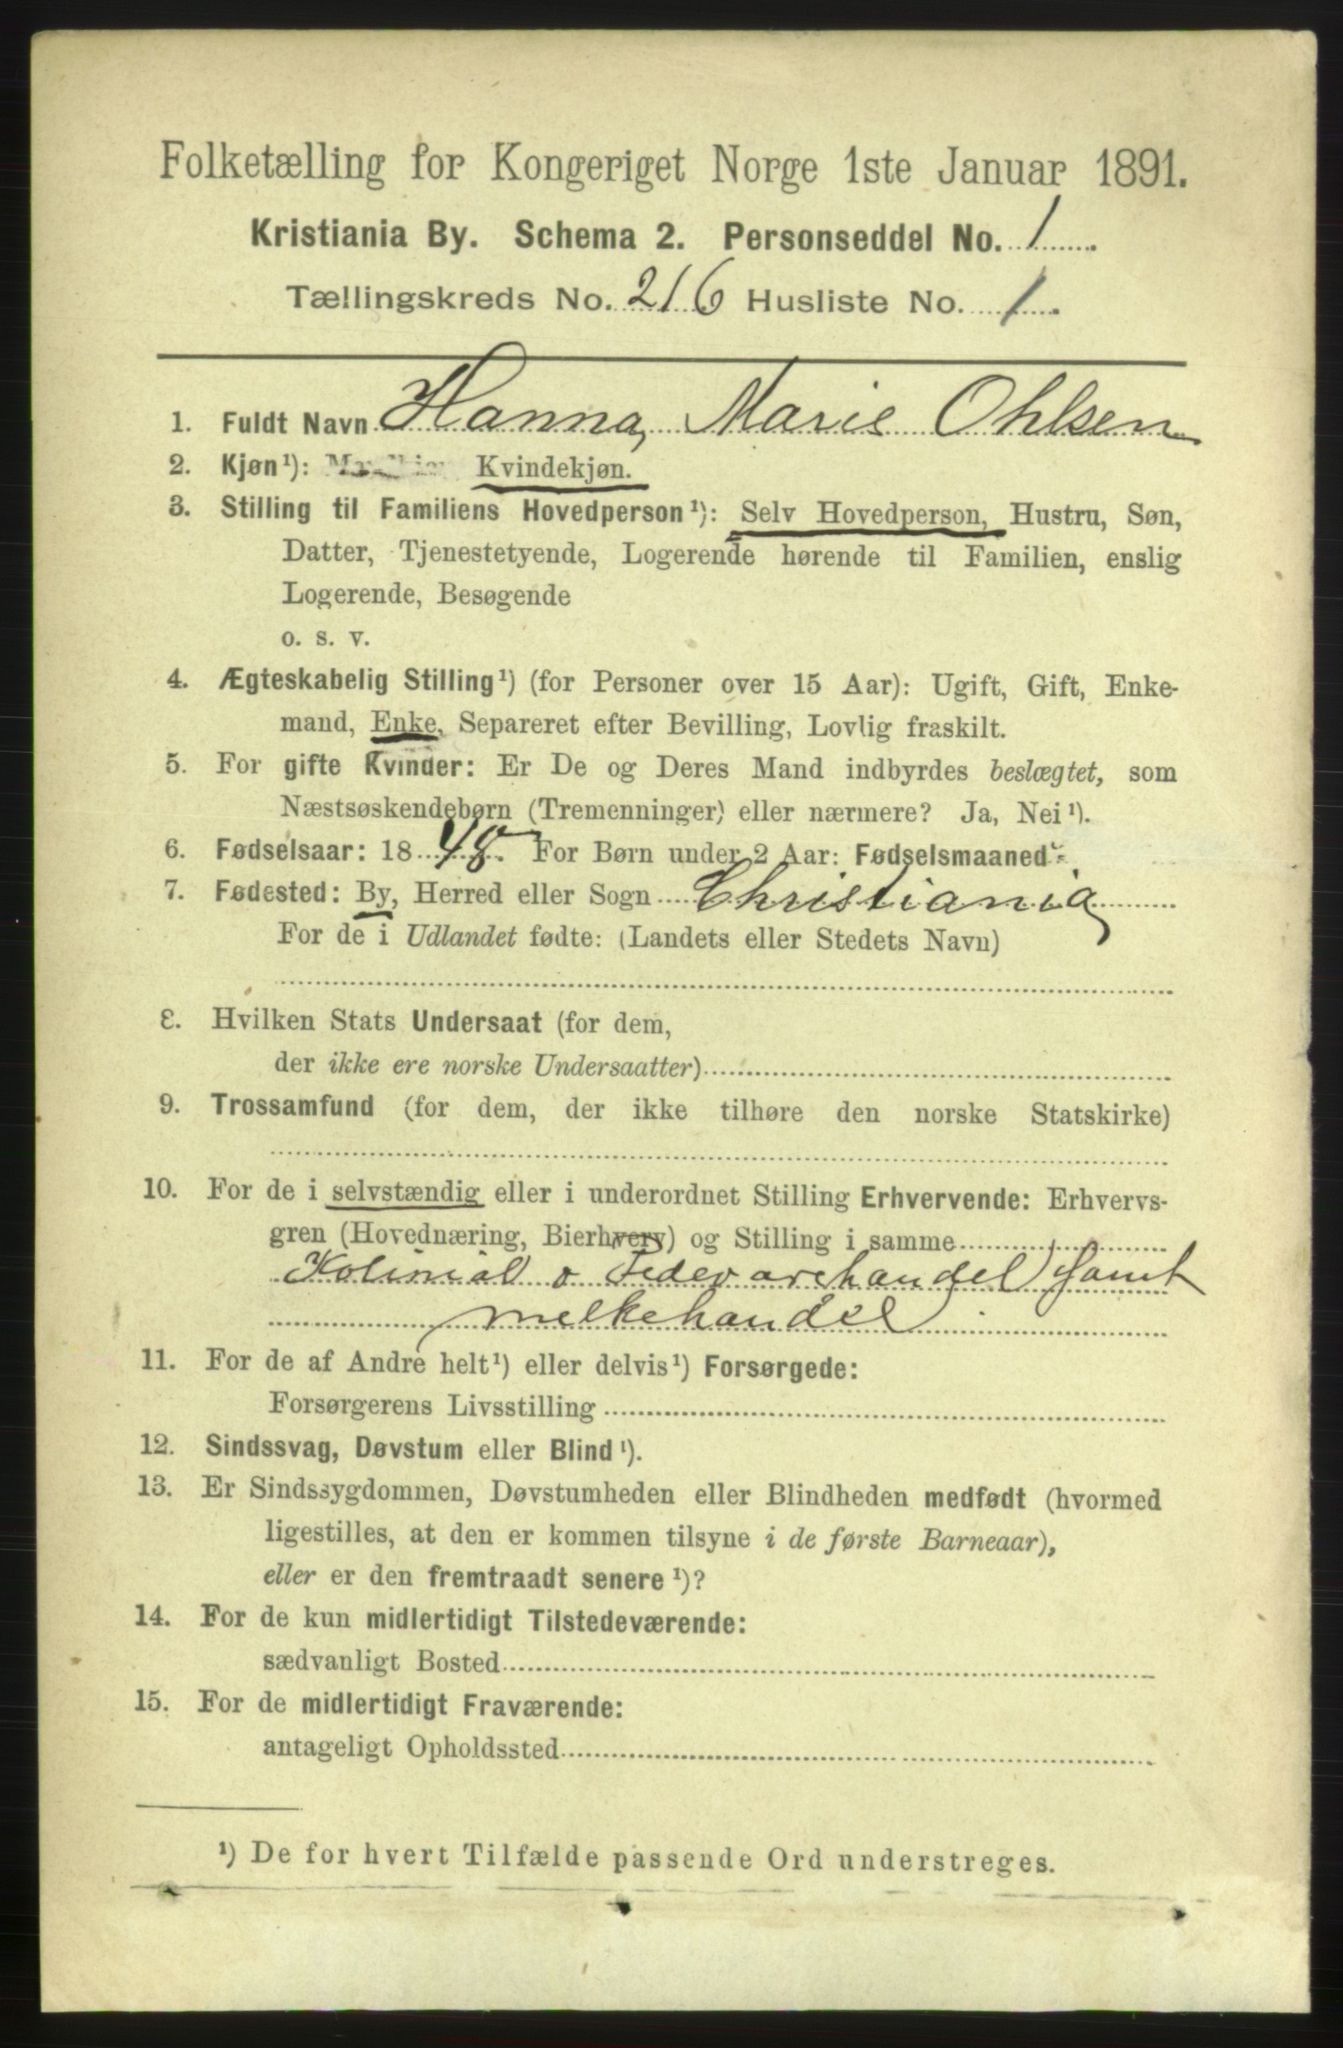 Folketælling for Kongeriget Norge 1ste Januar 1891.
Kristiania By. Schema 2. Personseddel No. 1
Tællingskreds No. 216 Husliste No. 1
1. Fuldt Navn Hanna, Marie Ohlsen
2. Kjøn¹): Kvindekjøn.
3. Stilling til Familiens Hovedperson¹): Selv Hovedperson, Hustru, Søn,
Datter, Tjenestetyende, Logerende hørende til Familien, enslig
Logerende, Besøgende
o. s. v.
4. Ægteskabelig Stilling¹) (for Personer over 15 Aar): Ugift, Gift, Enke-
mand, Enke, Separeret efter Bevilling, Lovlig fraskilt.
5. For gifte Kvinder: Er De og Deres Mand indbyrdes beslægtet, som
Næstsøskendebørn (Tremenninger) eller nærmere? Ja, Nei¹).
6. Fødselsaar: 1848. For Børn under 2 Aar: Fødselsmaaned:
7. Fødested: By, Herred eller Sogn Christiania
For de i Udlandet fødte: (Landets eller Stedets Navn)
8. Hvilken Stats Undersaat (for dem,
der ikke ere norske Undersaatter)
9. Trossamfund (for dem, der ikke tilhøre den norske Statskirke)
10. For de i selvstændig eller i underordnet Stilling Erhvervende: Erhvervs-
gren (Hovednæring, Bierhverv) og Stilling i samme
Kolinial o Fedevarehandel samt
melkehandel
11. For de af Andre helt¹) eller delvis¹) Forsørgede:
Forsørgerens Livsstilling
12. Sindssvag, Døvstum eller Blind¹).
13. Er Sindssygdommen, Døvstumheden eller Blindheden medfødt (hvormed
ligestilles, at den er kommen tilsyne i de første Barneaar),
eller er den fremtraadt senere¹)?
14. For de kun midlertidigt Tilstedeværende:
sædvanligt Bosted
15. For de midlertidigt Fraværende:
antageligt Opholdssted
¹) De for hvert Tilfælde passende Ord understreges.